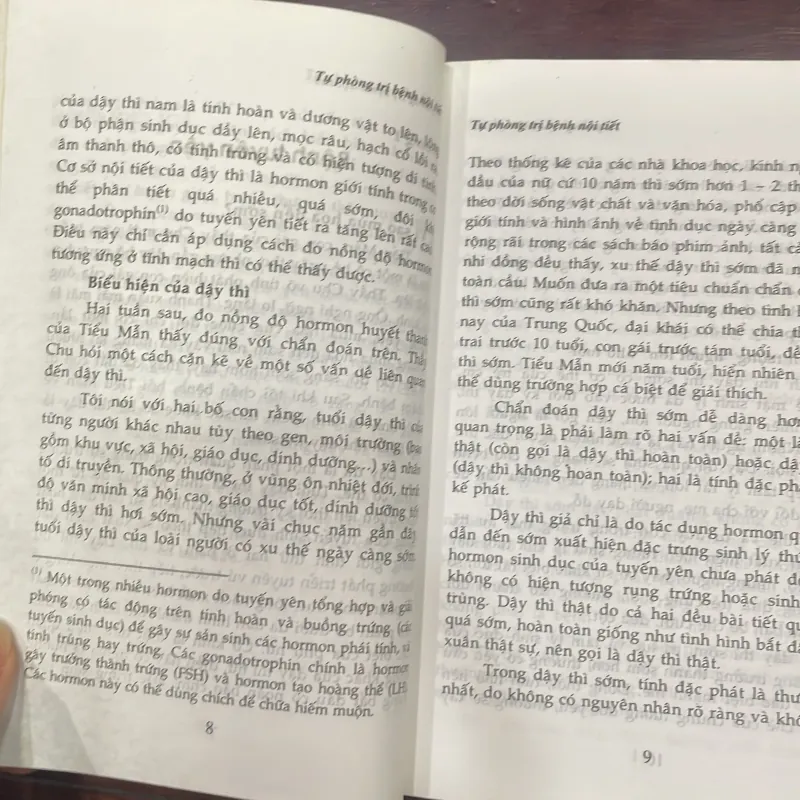 Tự phòng trị bệnh nội
của dậy thì nam là tinh hoàn và dương vật to lên,
ở bộ phận sinh dục dầy lên, mọc râu, hạch cổ lồi
âm thanh thô, có tinh trùng và có hiện tượng di tinh
Cơ sở nội tiết của dậy thì là hormon giới tính trong cơ
thể phân tiết quá nhiều, quá sớm, đôi khi
gonadotrophin(1) do tuyến yên tiết ra tăng lên rất cao.
Điều này chỉ cần áp dụng cách đo nồng độ hormon
tương ứng ở tĩnh mạch thì có thể thấy được.
Biểu hiện của dậy thì
Hai tuần sau, đo nồng độ hormon huyết thanh
của Tiểu Mẫn thấy đúng với chẩn đoán trên. Thầy
Chu hỏi một cách cặn kẽ về một số vấn uề liên quan
đến dậy thì.
Tôi nói với hai bố con rằng, tuổi dậy thì của
từng người khác nhau tùy theo gen, môi trường (bao
gồm khu vực, xã hội, giáo dục, dinh dưỡng...) và nhân
tố di truyền. Thông thường, ở vùng ôn nhiệt đới, trình
độ văn minh xã hội cao, giáo dục tốt, dinh dưỡng tốt
thì dậy thì hơi sớm. Nhưng vài chục năm gần đây
tuổi dậy thì của loài người có xu thế ngày càng sớm.
(1) Một trong nhiều hormon do tuyến yên tổng hợp và giải
phóng có tác động trên tinh hoàn và buồng trứng (các
tuyến sinh dục) để gây sự sản sinh các hormon phái tính, và
tinh trùng hay trứng. Các gonadotrophin chính là hormon
gây trưởng thành trứng (FSH) và hormon tạo hoàng thể (LH)
Các hormon này có thể dùng chích để chữa hiếm muộn.
8
Tự phòng trị bệnh nội tiết
Theo thống kê của các nhà khoa học, kinh
đầu của nữ cứ 10 năm thì sớm hơn 1 - 2 th
theo đời sống vật chất và văn hóa, phổ cập
giới tính và hình ảnh về tình dục ngày càng
rộng rãi trong các sách báo phim ảnh, tất cả
nhi đồng đều thấy, xu thế dậy thì sớm đã
toàn cầu. Muốn đưa ra một tiêu chuẩn chẩn
thì sớm cũng rất khó khăn. Nhưng theo tình
nay của Trung Quốc, đại khái có thể chia
trai trước 10 tuổi, con gái trước tám tuổi, dễ
thì sớm. Tiểu Mẫn mới năm tuổi, hiển nhiên
thể dùng trường hợp cá biệt để giải thích.
Chẩn đoán dậy thì sớm dễ dàng hơn
quan trọng là phải làm rõ hai vấn đề: một là
thật (còn gọi là dậy thì hoàn toàn) hoặc dậ
(dậy thì không hoàn toàn); hai là tính đặc ph
kế phát.
Dậy thì giả chỉ là do tác dụng hormon q
dẫn đến sớm xuất hiện đặc trưng sinh lý thứ
hormon sinh dục của tuyến yên chưa phát
không có hiện tượng rụng trứng hoặc sinh
trùng. Dậy thì thật do cả hai đều bài tiết qu
quá sớm, hoàn toàn giống như tình hình bắt đầ
xuân thật sự, nên gọi là dậy thì thật.
Trong dậy thì sớm, tính đặc phát là thư
nhất, do không có nguyên nhân rõ ràng và khô
9